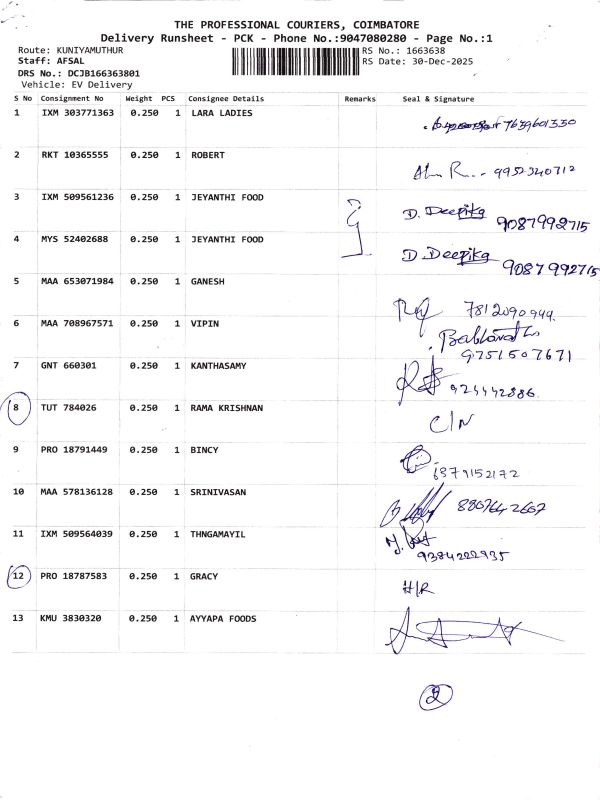 THE PROFESSIONAL COURIERS, COIMBATORE
Delivery Runsheet - PCK - Phone No.:9047080280 - Page No.:1
Route: KUNIYAMUTHUR RS No.: 1663638
Staff: AFSAL RS Date: 30-Dec-2025
DRS No.: DCJB166363801
Vehicle: EV Delivery
S No Consignment No Weight PCS Consignee Details Remarks Seal & Signature
1 IXM 303771363 0.250 1 LARA LADIES 7639601330
2 RKT 10365555 0.250 1 ROBERT 9952340712
3 IXM 509561236 0.250 1 JEYANTHI FOOD D. Deepika 9087992715
4 MYS 52402688 0.250 1 JEYANTHI FOOD D. Deepika 9087992715
5 MAA 653071984 0.250 1 GANESH 7812090944.
6 MAA 708967571 0.250 1 VIPIN
9751507671
7 GNT 660301 0.250 1 KANTHASAMY
8 TUT 784026 0.250 1 RAMA KRISHNAN C/N
9 PRO 18791449 0.250 1 BINCY 6379152172
10 MAA 578136128 0.250 1 SRINIVASAN 8807642667
11 IXM 509564039 0.250 1 THNGAMAYIL
9384222935
12 PRO 18787583 0.250 1 GRACY H/R
13 KMU 3830320 0.250 1 AYYAPA FOODS
2